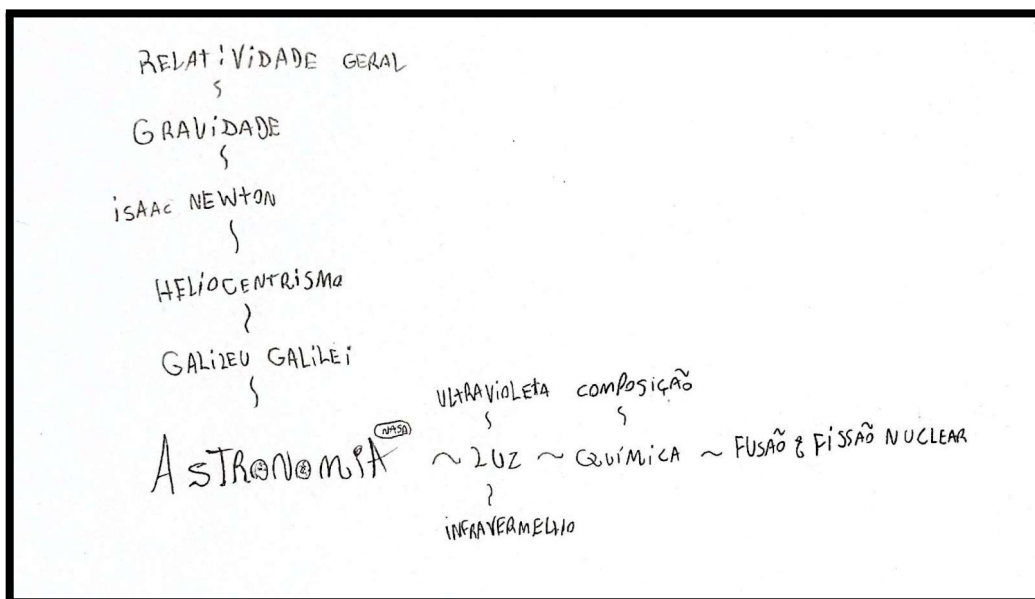 RELATIVIDADE GERAL
GRAVIDADE
ISAAC NEWTON
HELIOCENTRISMO
GALILEU GALILEI
ULTRAVIOLETA COMPOSIÇÃO
NASA
ASTRONOMIA ~ LUZ ~ QUÍMICA ~ FUSÃO & FISSÃO NUCLEAR
INFRAVERMELHO